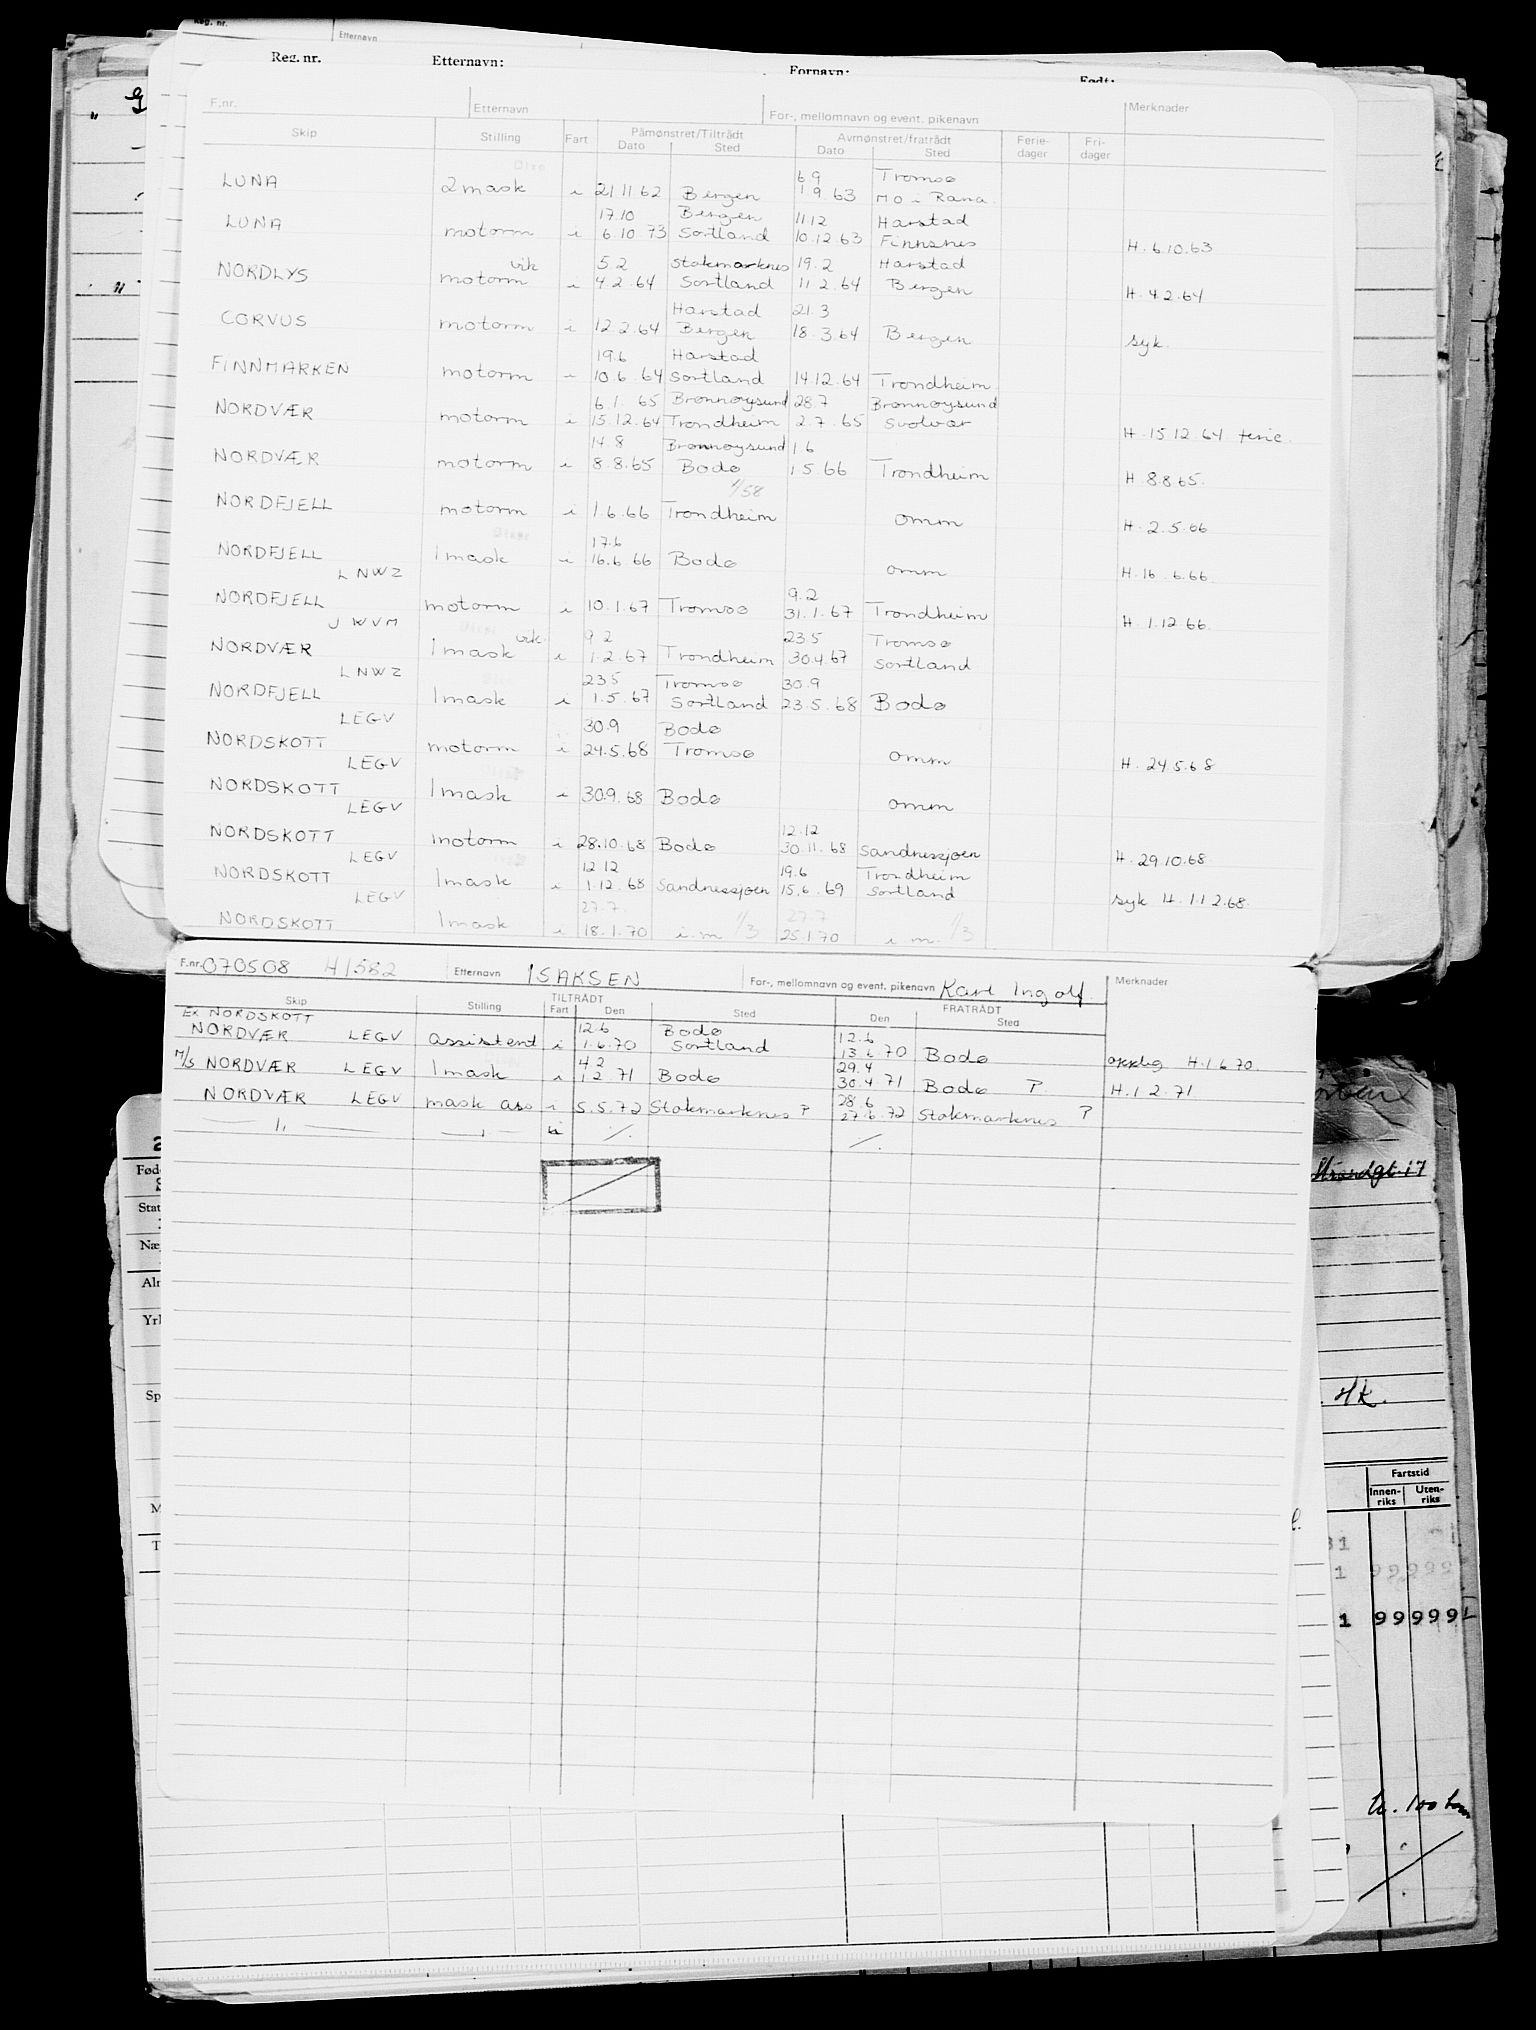 Reg. nr.
Etternavn
Reg. nr. Etternavn: Fornavn: Født:
F.nr. Etternavn For-, mellomnavn og event. pikenavn Merknader
Skip Stilling Fart Påmønstret/Tiltrådt Avmønstret/fratrådt Ferie- Fri-
Dato Sted Dato Sted dager dager
6 9 Tromsø
LUNA 2 mask i 21 11 62 Bergen 1 9 63 Mo i Rana.
17.10 Bergen 11.12 Harstad
LUNA motorm i 6.10.73 Sortland 10.12.63 Finnsnes H. 6.10.63
vik 5.2 Stokmarknes 19.2 Harstad
NORDLYS motorm i 4.2.64 Sortland 11 2.64 Bergen H. 4.2.64
Harstad 21.3
CORVUS motorm i 12.2.64 Bergen 18.3.64 Bergen syk.
19.6 Harstad
FINNMARKEN motorm i 10.6.64 Sortland 14.12.64 Trondheim
6.1.65 Brønnøysund 28.7 Brønnøysund
NORDVÆR motorm i 15.12.64 Trondheim 2.7.65 Svolvær H. 15.12.64 ferie.
14.8 Brønnøysund 1 6
NORDVÆR motorm i 8.8.65 Bodø 1 5.66 Trondheim H. 8.8.65.
1/58
NORDFJELL motorm i 1.6.66 Trondheim omm H. 2.5.66
17.6
NORDFJELL 1 mask i 16.6.66 Bodø omm H. 16.6.66.
LNWZ
9.2
NORDFJELL motorm i 10.1.67 Tromsø 31.1.67 Trondheim H. 1.12.66.
JWVM
vik. 9 2 23.5 Tromsø
NORDVÆR 1 mask i 1.2.67 Trondheim 30.4.67 Sortland
LNWZ
23.5 Tromsø 30.9
NORDFJELL 1 mask i 1.5.67 Sortland 23.5.68 Bodø
LEGV
30.9 Bodø
NORDSKOTT motorm i 24.5.68 Tromsø omm H. 24.5.68
LEGV
NORDSKOTT 1 mask i 30.9.68 Bodø omm
LEGV
12.12
NORDSKOTT motorm i 28.10.68 Bodø 30.11.68 Sandnessjøen H. 29.10.68
LEGV
12 12 19.6 Trondheim
NORDSKOTT 1 mask i 1.12.68 Sandnessjøen 15.6.69 Sortland syk H. 1.12.68.
LEGV
27.7. 27.7
NORDSKOTT 1 mask i 18.1.70 i.m 1/3 25.1.70 i m. 1/3
F.nr. 070508 41552 Etternavn ISAKSEN For-, mellomnavn og event. pikenavn Karl Ingolf Merknader
Skip Stilling TILTRÅDT FRATRÅDT
Fart Den Sted Den Sted
Ex NORDSKOTT 12.6 Bodø 12.6
NORDVÆR LEGV assistent i 1.6.70 Sortland 13 6 70 Bodø H. 1 6 70.
4 2 29.4
M/S NORDVÆR LEGV 1 mask i 1 2.71 Bodø 30.4.71 Bodø P. H. 1 2.71
28.6
NORDVÆR LEGV mask ass i 5.5.72 Stokmarknes P 27.6.72 Stokmarknes P
Strandgt. 17
Fartstid
Innen- Uten-
riks riks
1 99 999
1 99 999